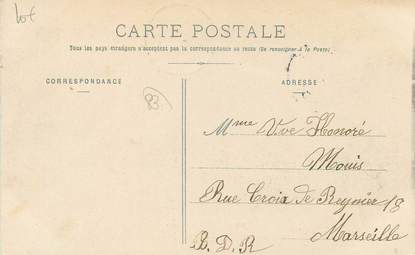 lot
CARTE POSTALE
Tous les pays étrangers n'acceptent pas la correspondance au recto (Se renseigner à la Poste)
CORRESPONDANCE
ADRESSE
83
Mme Vve Honoré
Mouis
Rue Croix de Reynier 18
Marseille
B. D. R